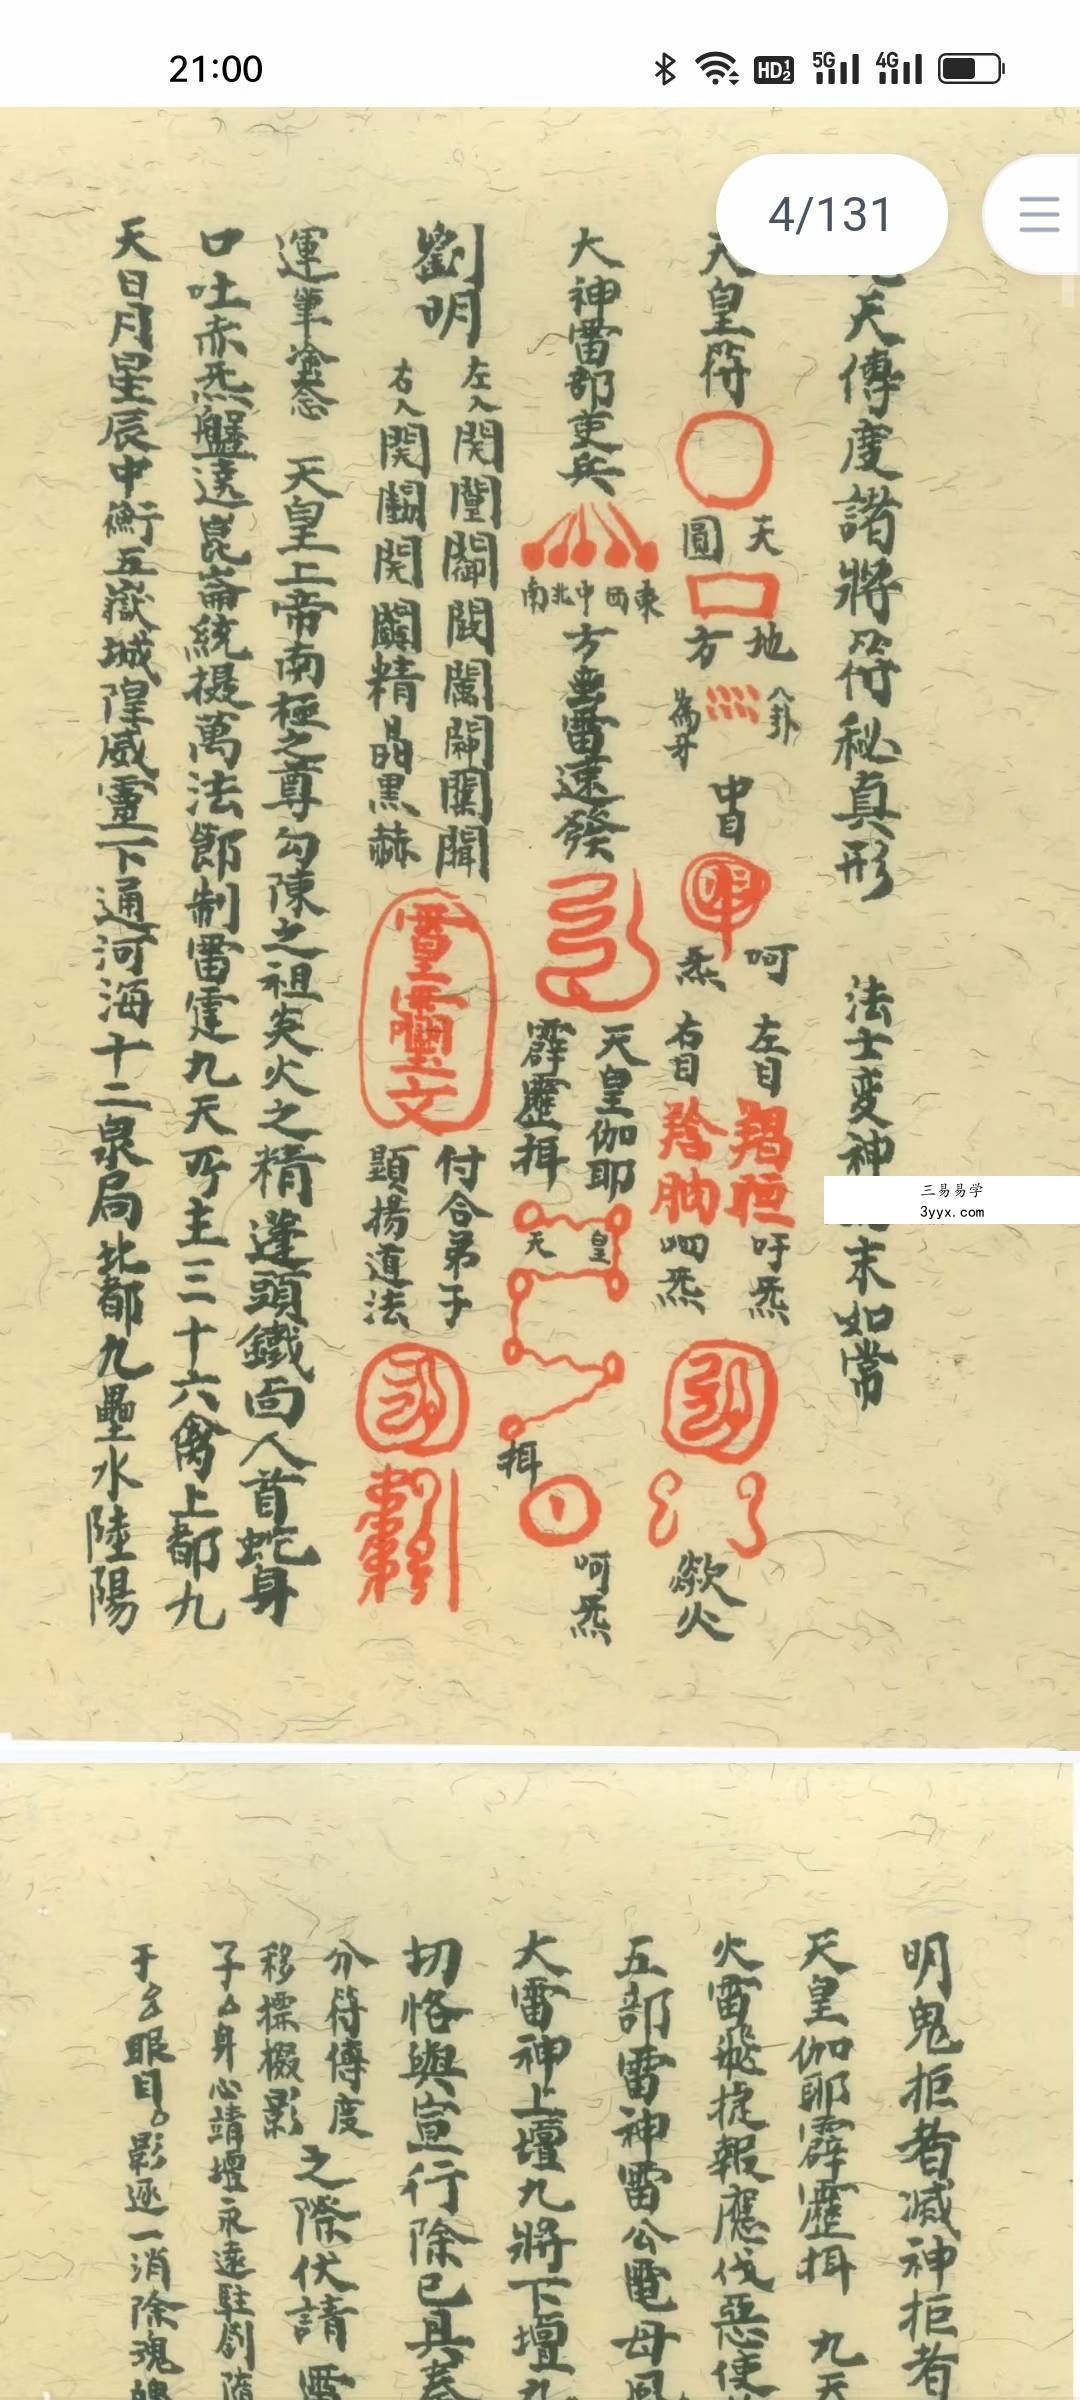 21:00
4/131
天傳度諸將符秘真形 法士变神 末如常
天皇符
天圓
地方
八卦為牙
中目
呵炁
左目
右目
吁炁
呬炁
歘火
大神雷部吏兵
東西中北南
方蛮雷速發
天皇伽耶
霹靂揖
皇
天
揖
呵炁
劉明
左入
右入
精晶黑赫
付合弟子
顕揚道法
運筆塗念 天皇上帝南極之尊勾陳之祖炎火之精蓬頭鐵面人首蛇身
口吐赤炁盤遶崑崙統提萬法節制雷霆九天所主三十六禽上都九
天日月星辰中衡五嶽城隍威靈下通河海十二泉局北都九壘水陸陽
三易易学
3yyx.com
明鬼拒者滅神拒者
天皇伽耶霹靂揖 九天
火雷飛捷報應伐惡使
五部雷神雷公電母風
大雷神上壇九將下壇九
切恪與宣行除已具奏
分符傳度
移標掇影
之際伏請
子 身心靖壇永遠駐劄隨
于 眼目 影逐一消除魂魄